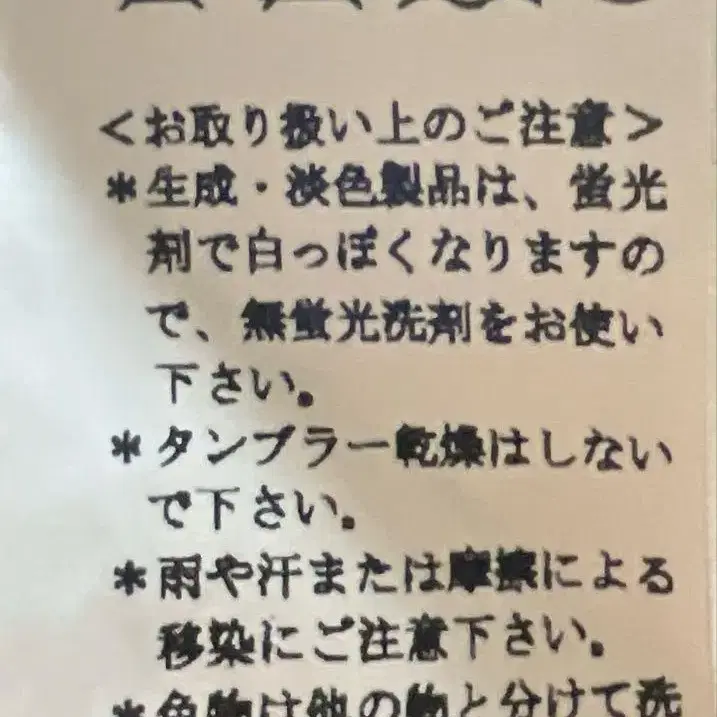 <お取り扱い上のご注意>
*生成・淡色製品は、蛍光
剤で白っぽくなりますの
で、無蛍光洗剤をお使い
下さい。
*タンブラー乾燥はしない
で下さい。
*雨や汗または摩擦による
移染にご注意下さい。
*色物は他の物と分けて洗